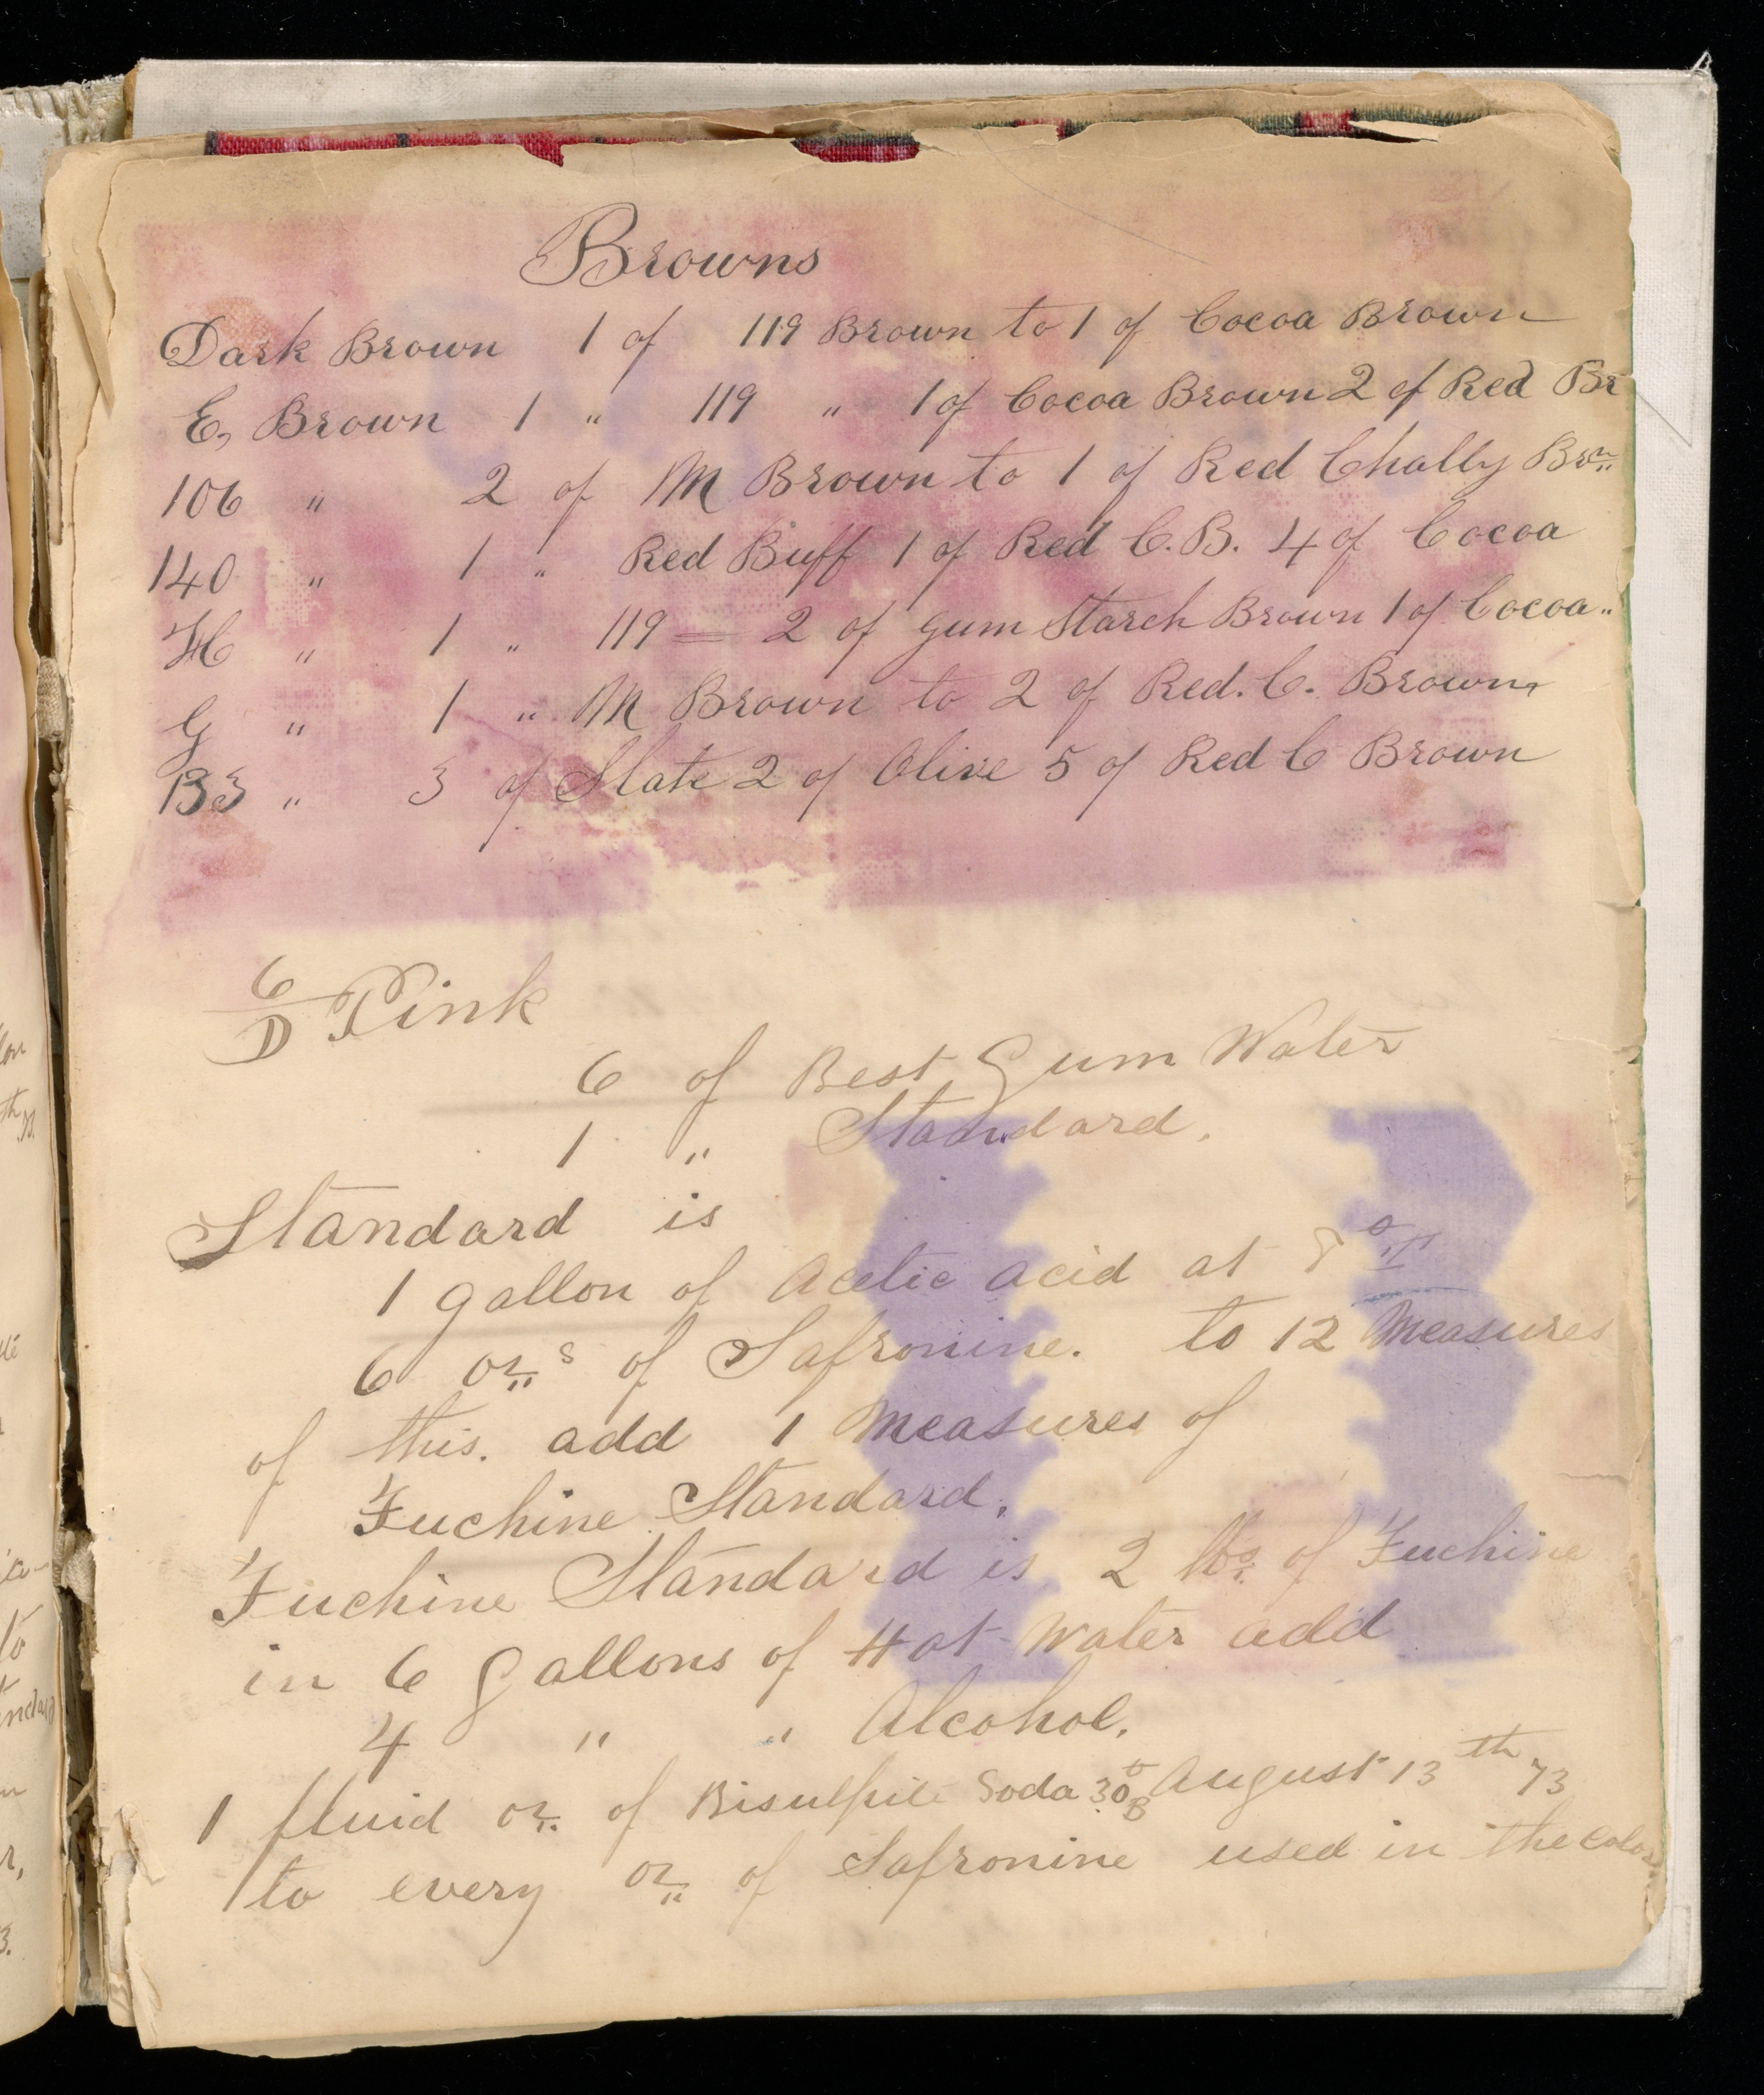 Browns
Dark Brown 1 of 119 Brown to 1 of Cocoa Brown
E, Brown 1 " 119 " 1 of Cocoa Brown 2 of Red Br
106 " 2 of M Brown to 1 of Red Chally Brn
140 " 1 " Red Buff 1 of Red C.B. 4 of Cocoa
H " 1 " 119 = 2 of gum Starch Brown 1 of Cocoa "
G " 1 " M Brown to 2 of Red. C. Brown
133 " 3 of Slate 2 of Olive 5 of Red C Brown
6/D Pink
6 of Best Gum Water
1 " Standard.
Standard is
1 gallon of Acetic acid at 8° T
6 ozs of Safronine. to 12 Measures
of this. add 1 Measures of
Fuchine Standard.
Fuchine Standard is 2 lbs of Fuchine
in 6 Gallons of Hot Water add
4 " " Alcohol.
1 fluid oz. of Bisulfite Soda 30° B August 13th 73
to every oz of Safronine used in the color